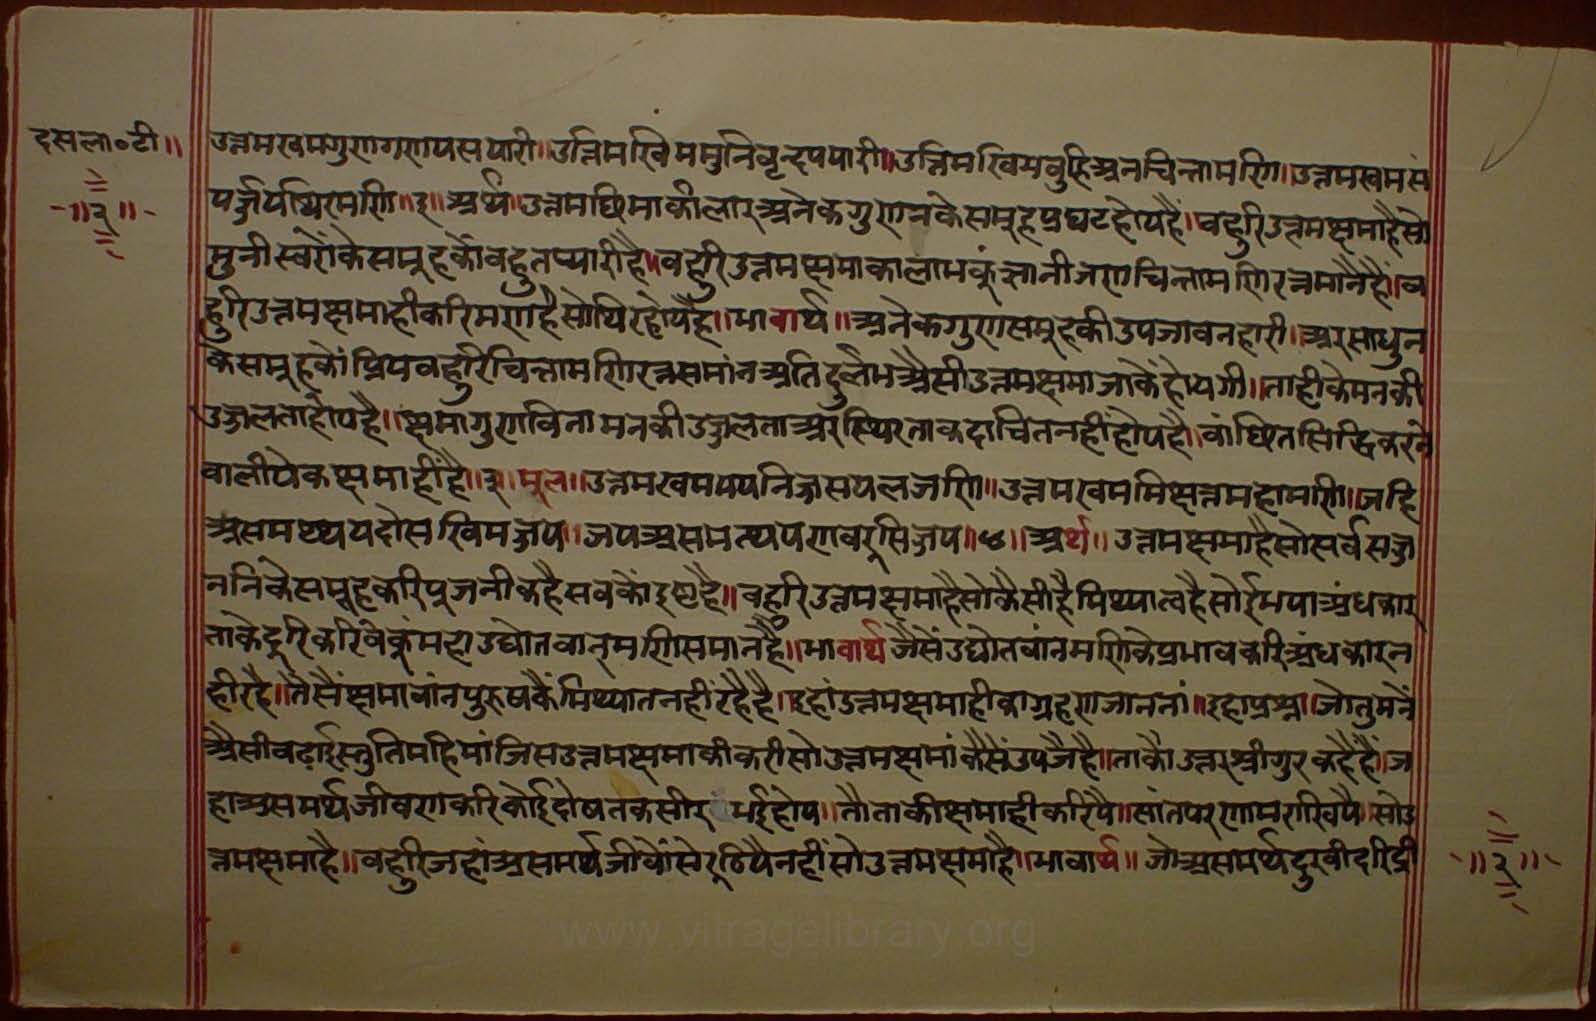 दसला०टी॥
॥२॥
उत्तमखमगुणगणयसपारी॥उत्तिमखिममुनिवृन्दपपारी॥उत्तिमखिमवुहिअनचिन्तामणि॥उत्तमखमसं
पज्जैयथिरमणि॥३॥अर्थ॥उत्तमछिमाकीलारअनेकगुणनकेसमूहप्रघटहोयहैं।वहुरिउत्तमक्षमाहैसो
मुनीस्वरोंकेसमूहकोंवहुतप्यारीहै॥वहुरिउत्तमक्षमाकालाभकूंज्ञानीजणचिन्तामणिरत्नमानैहैं।व
हुरिउत्तमक्षमाहीकरिमणहैसोथिरहोयहै॥भावार्थ॥अनेकगुणसमूहकीउपजावनहारी।अरसाधुन
केसमूहकोंप्रियवहुरिचिन्तामणिरत्नसमांनअतिदुर्लभअैसीउत्तमक्षमाजाकेंहोयगी॥ताहीकेमनकी
उज्जलताहोयहै॥क्षमागुणविनामनकीउज्जलताअरस्थिरताकदाचितनहींहोयहै।वांछितसिद्धिकरने
वालीयेकक्षमाहींहै॥३॥मूल॥उत्तमखमपपनिज्जसयलजणि॥उत्तमखममिछत्तमहामणी॥जहि
असमथ्थयदोसखिमज्जय॥जपअसमत्थपणवरुसिज्जय॥४॥अर्थ॥उत्तमक्षमाहैसोसर्वसज्ज
ननिकेसमूहकरिपूजनीकहैसवकोंइष्टहै॥वहुरिउत्तमक्षमाहैसोकैसीहैमिथ्यात्वहैसोईभयाअंधकार
ताकेदूरिकरिवेकूंमहाउद्योतवानमणिसमानहै॥भावार्थजैसेंउद्योतवांनमणिकेप्रभावकरिअंधकारन
हीरहै।तैसैंक्षमावांनपुरुषकैंमिथ्यातनहींरहैहै॥इहांउत्तमक्षमाहीकाग्रहणजाननां॥इहाप्रश्न।जोतुमनें
अैसीवढाईस्तुतिमहिमांजिसउत्तमक्षमाकीकरीसोउत्तमक्षमांकैसैंउपजैहै॥ताकौउत्तरश्रीगुरकहैहैं।ज
हाअसमर्थजीवणकरिकोईदोषतकसीर भईहोय॥तौताकीक्षमाहीकरियै॥सांतपरणामराखियै।सोउ
त्तमक्षमाहै॥वहुरिजहांअसमर्थजीवोंसेरूठियैनहींसोउत्तमक्षमाहै॥भावार्थ॥जोअसमर्थदुखीदरिद्री
॥२॥
www.vitragelibrary.org